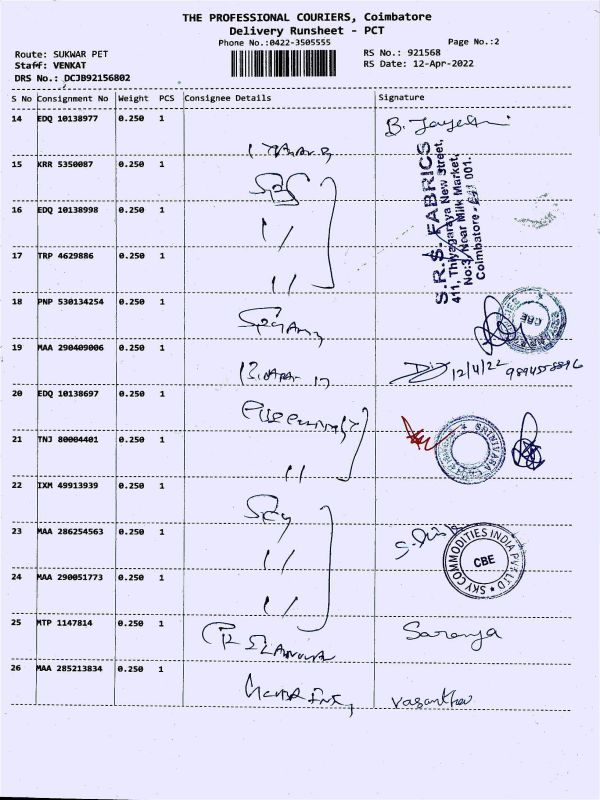 THE PROFESSIONAL COURIERS, Coimbatore
Delivery Runsheet - PCT
Phone No.:0422-3505555
Page No.:2
Route: SUKWAR PET
RS No.: 921568
Staff: VENKAT
RS Date: 12-Apr-2022
DRS No.: DCJB92156802
S No Consignment No Weight PCS Consignee Details Signature
14 EDQ 10138977 0.250 1
15 KRR 5350087 0.250 1
16 EDQ 10138998 0.250 1
17 TRP 4629886 0.250 1
S.R.S. FABRICS
411, Thiyagaraya New Street,
No:3, Near Milk Market,
Coimbatore - 641 001.
18 PNP 530134254 0.250 1
CBE
19 MAA 290409006 0.250 1
12/4/22
20 EDQ 10138697 0.250 1
21 TNJ 80004401 0.250 1
22 IXM 49913939 0.250 1
Sky
23 MAA 286254563 0.250 1
SKY COMMODITIES INDIA PVT LTD
CBE
24 MAA 290051773 0.250 1
25 MTP 1147814 0.250 1 Saranya
26 MAA 285213834 0.250 1